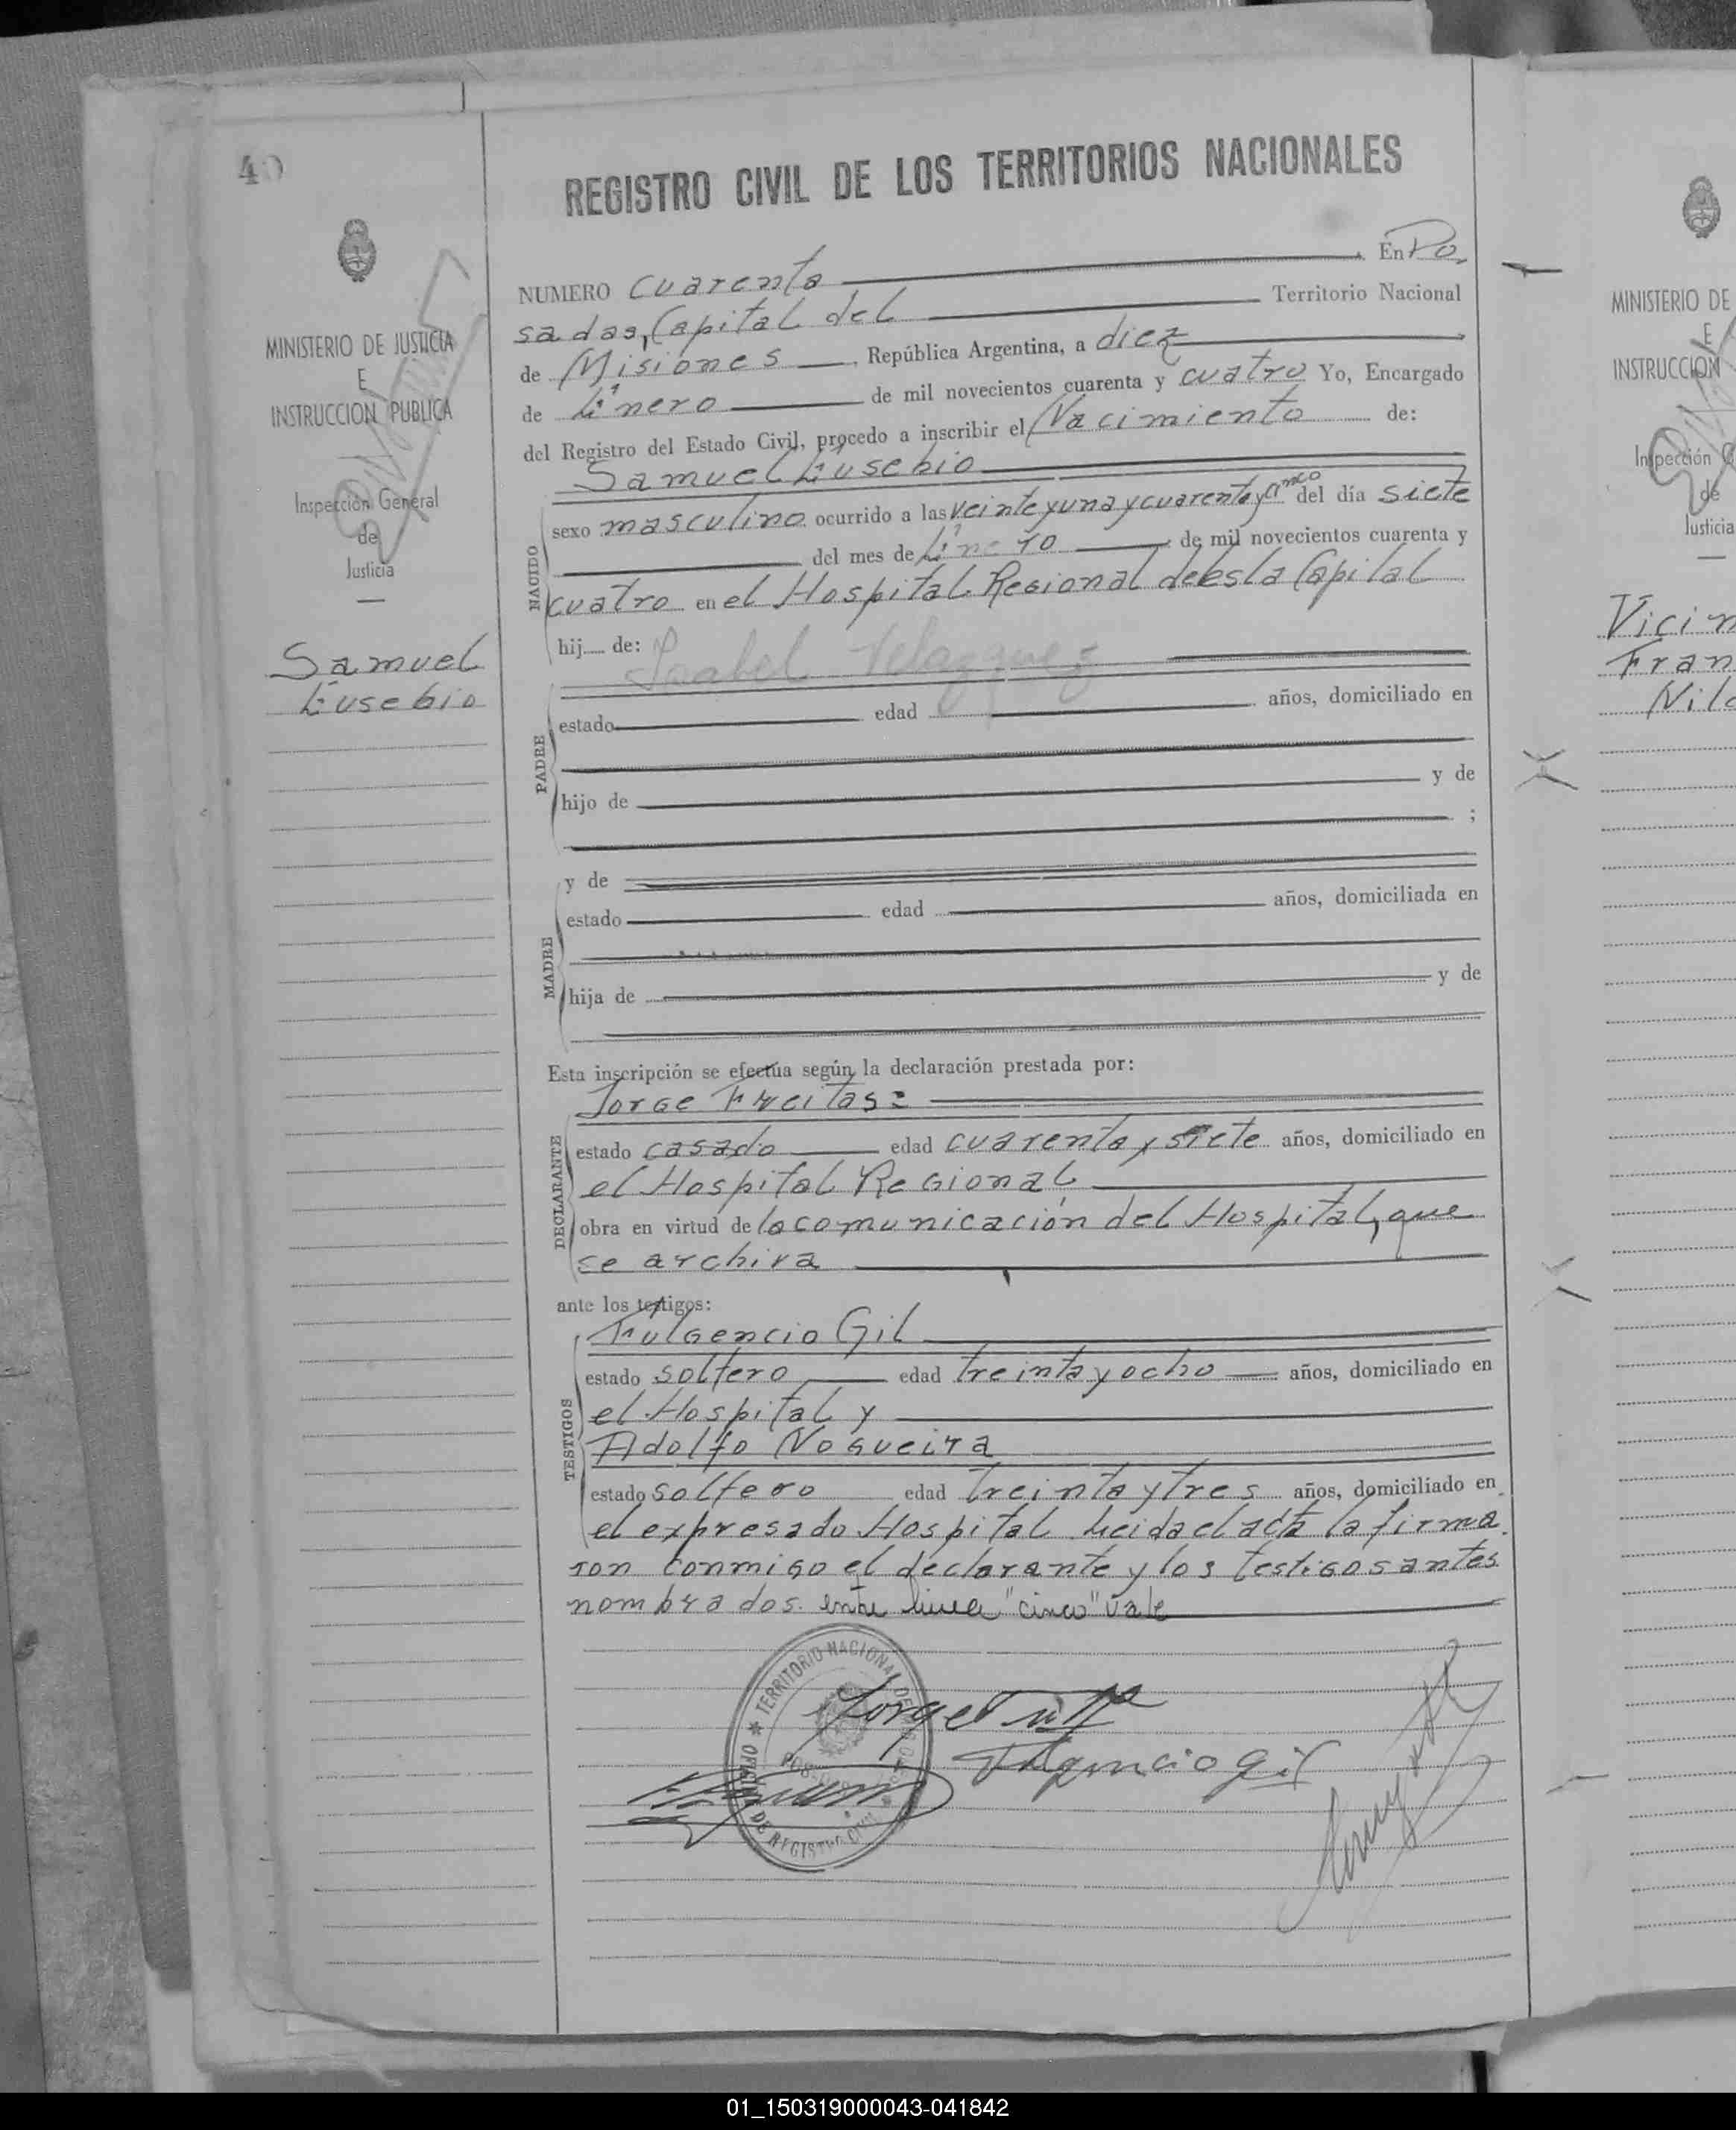 40
REGISTRO CIVIL DE LOS TERRITORIOS NACIONALES
MINISTERIO DE JUSTICIA
E
INSTRUCCION PUBLICA
Inspección General
de
Justicia
Samuel
Eusebio
NUMERO cuarenta En Po
sadas, Capital del Territorio Nacional
de Misiones, República Argentina, a diez
de Enero de mil novecientos cuarenta y cuatro Yo, Encargado
del Registro del Estado Civil, procedo a inscribir el Nacimiento de:
NACIDO
Samuel Eusebio
sexo masculino ocurrido a las veinte y una y cuarenta y cinco del día siete
del mes de Enero de mil novecientos cuarenta y
cuatro en el Hospital Regional de esta Capital
hij de: Isabel Velazquez
PADRE
estado edad años, domiciliado en
hijo de y de
;
MADRE
y de
estado edad años, domiciliada en
hija de y de
Esta inscripción se efectúa según la declaración prestada por:
DECLARANTE
Jorge Freitas=
estado casado edad cuarenta y siete años, domiciliado en
el Hospital Regional
obra en virtud de la comunicación del Hospital, que
se archiva
ante los testigos:
TESTIGOS
Fulgencio Gil
estado soltero edad treinta y ocho años, domiciliado en
el Hospital y
Adolfo Nogueira
estado soltero edad treinta y tres años, domiciliado en
el expresado Hospital Leida el acta la firma
ron conmigo el declarante y los testigos antes
nombrados. entre linea "cinco" vale
TERRITORIO NACIONAL DE
OFICINA DE REGISTRO CIVIL
Jorge
Fulgencio Gil
MINISTERIO DE
E
INSTRUCCION
Inspección G
de
Justicia
Vicin
Fran
Nil
01_150319000043-041842